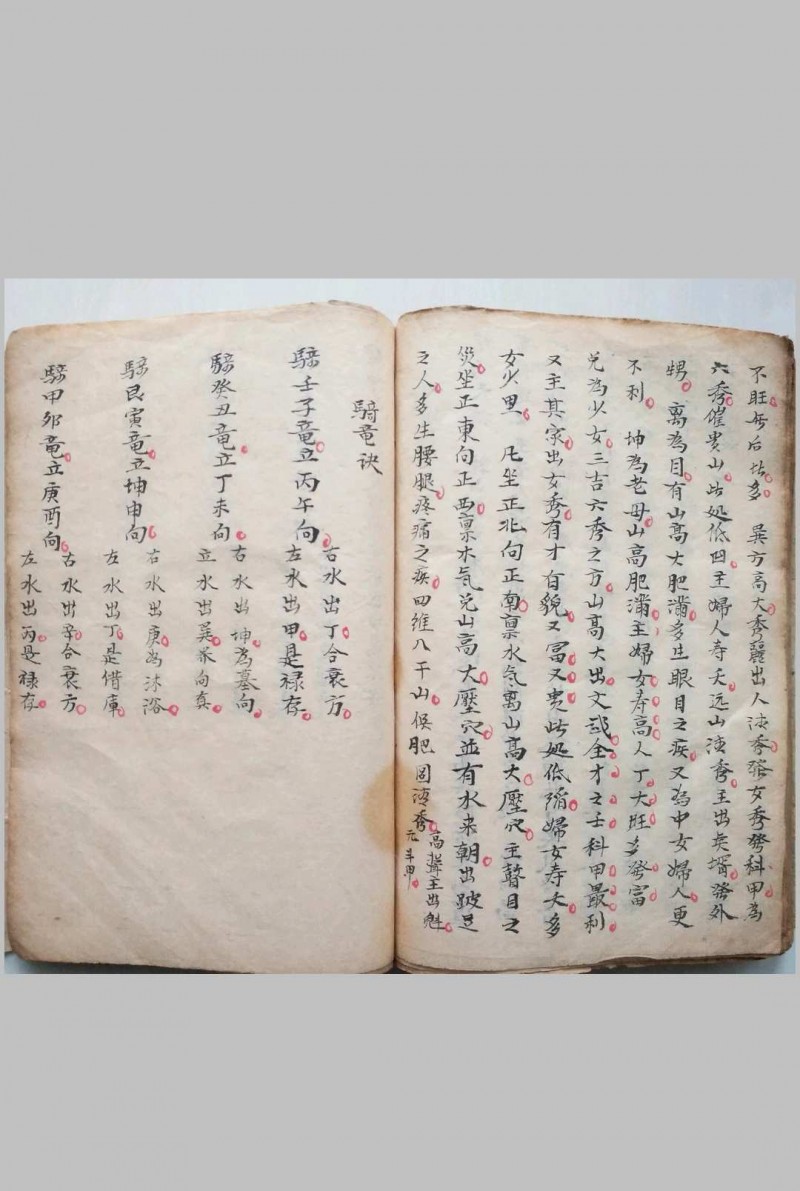 不旺每后块多　巽方高大秀麗出人清秀發女秀發科甲為
六秀催貴山此処低凹主婦人寿夭远山清秀主出矣壻發外
甥　离為目有山高大肥滿多生眼目之疾又為中女婦人更
不利　坤為老母山高肥滿主婦女寿高人丁大旺多發富
兌為少女三吉六秀之方山高大出文武全才之士科甲最利
又主其家出女秀有才自貌又冨又貴此処低陥婦女寿夭多
女少男　凡坐正北向正南禀水气离山高大壓穴主瞽目之
災坐正東向正西禀木気兌山高大壓穴並有水来朝出跛足
之人多生腰腿疼痛之疾四維八干山俱肥圆清秀高聳主出魁
元斗甲
騎竜诀
騎壬子竜立丙午向
右水出丁合衰方
左水出甲是禄存
騎癸丑竜立丁未向
右水出坤為墓向
立水出巽米向真
騎艮寅竜立坤申向
右水出庚為沐浴
左水出丁是借庫
騎甲卯竜立庚酉向
右水出辛合衰方
左水出丙是禄存